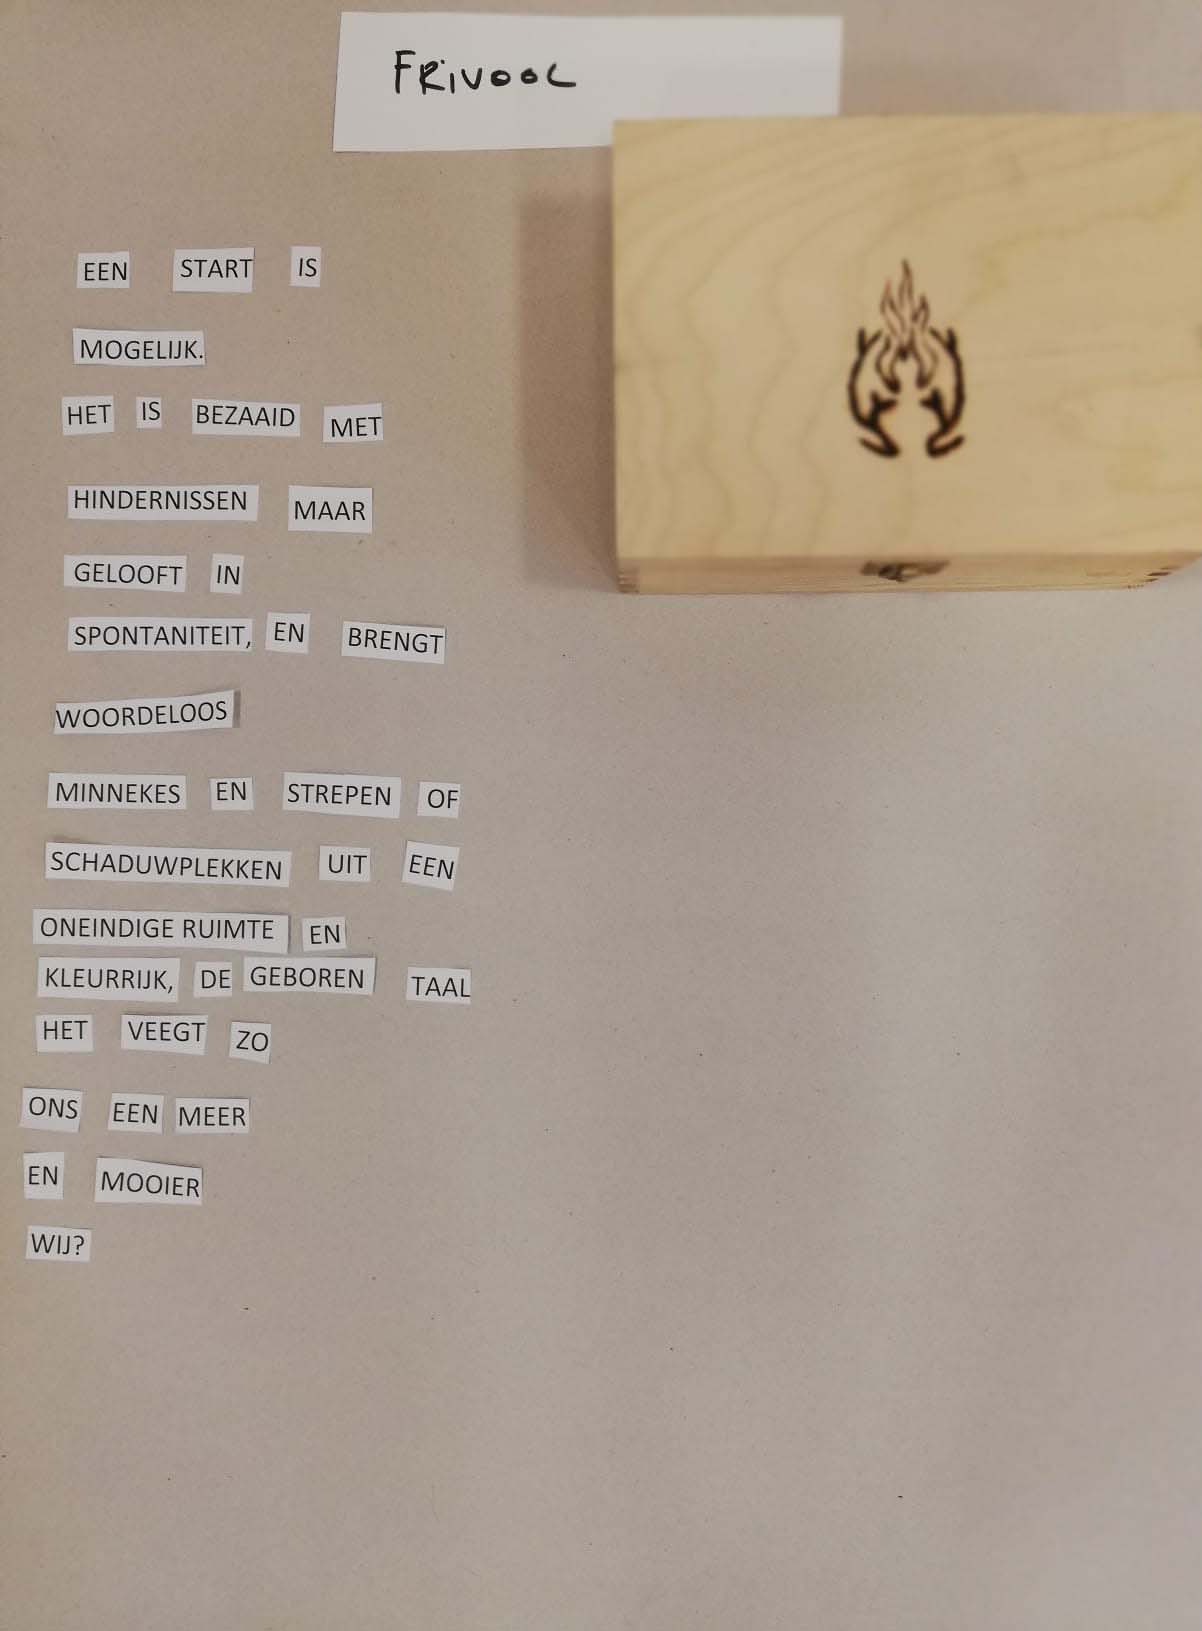 FRIVOOL
EEN START IS
MOGELIJK.
HET IS BEZAAID MET
HINDERNISSEN MAAR
GELOOFT IN
SPONTANITEIT, EN BRENGT
WOORDELOOS
MINNEKES EN STREPEN OF
SCHADUWPLEKKEN UIT EEN
ONEINDIGE RUIMTE EN
KLEURRIJK, DE GEBOREN TAAL
HET VEEGT ZO
ONS EEN MEER
EN MOOIER
WIJ?